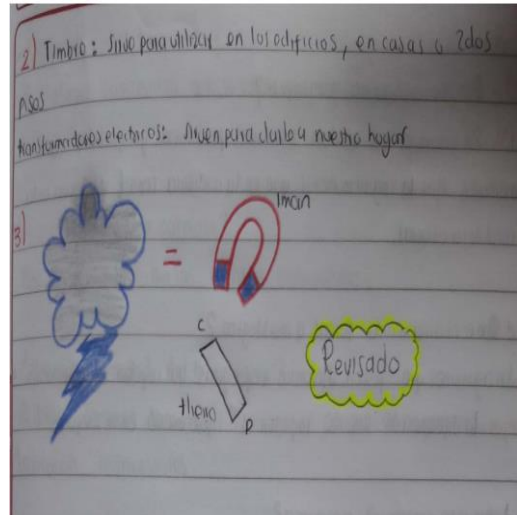 2) Timbre: Sirve para utilizar en los edificios, en casas o 2dos
pisos
transformadores electricos: sirven para darle a nuestro hogar
3)
=
Iman
C
Revisado
P